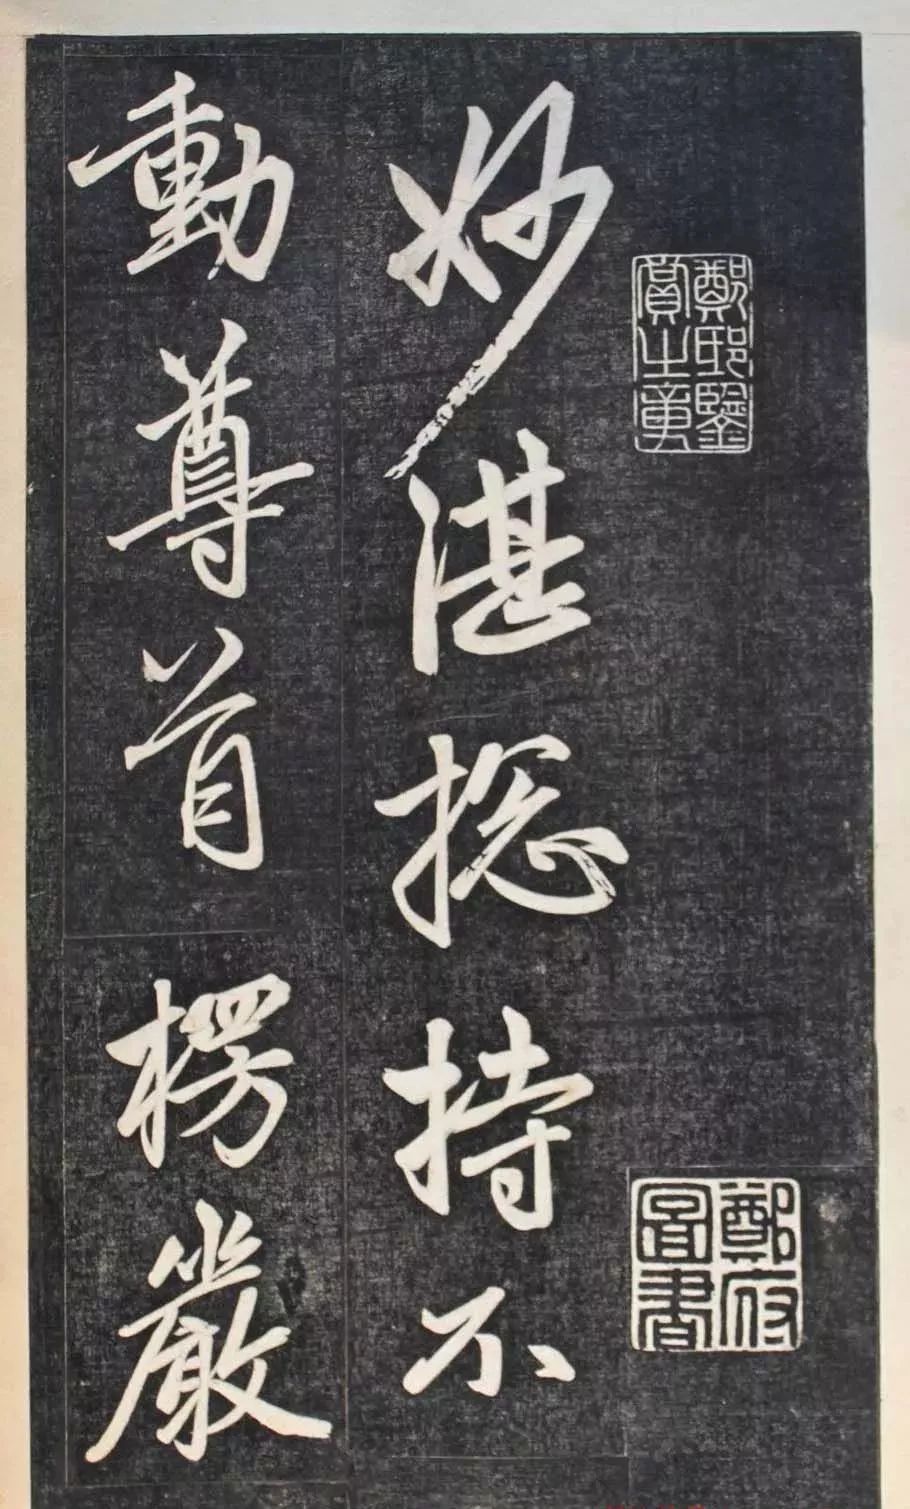 鄭邸鑒
賞之章
鄭府
圖書
妙湛揔持不
動尊首楞嚴